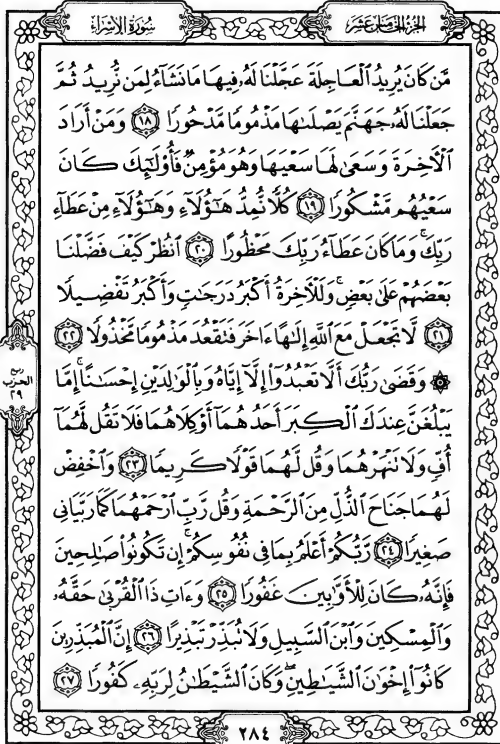 سُورَةُ الإِسْرَاءِ
الجُزْءُ الخَامِسَ عَشَرَ
مَّن كَانَ يُرِيدُ الْعَاجِلَةَ عَجَّلْنَا لَهُۥ فِيهَا مَا نَشَآءُ لِمَن نُّرِيدُ ثُمَّ
جَعَلْنَا لَهُۥ جَهَنَّمَ يَصْلَىٰهَا مَذْمُومًا مَّدْحُورًا ١٨ وَمَنْ أَرَادَ
الْأٓخِرَةَ وَسَعَىٰ لَهَا سَعْيَهَا وَهُوَ مُؤْمِنٌ فَأُو۟لَٰٓئِكَ كَانَ
سَعْيُهُم مَّشْكُورًا ١٩ كُلًّا نُّمِدُّ هَٰٓؤُلَآءِ وَهَٰٓؤُلَآءِ مِنْ عَطَآءِ
رَبِّكَ ۚ وَمَا كَانَ عَطَآءُ رَبِّكَ مَحْظُورًا ٢٠ انظُرْ كَيْفَ فَضَّلْنَا
بَعْضَهُمْ عَلَىٰ بَعْضٍ ۚ وَلَلْأٓخِرَةُ أَكْبَرُ دَرَجَٰتٍ وَأَكْبَرُ تَفْضِيلًا
٢١ لَّا تَجْعَلْ مَعَ اللَّهِ إِلَٰهًا ءَاخَرَ فَتَقْعُدَ مَذْمُومًا مَّخْذُولًا ٢٢
۞ وَقَضَىٰ رَبُّكَ أَلَّا تَعْبُدُوٓا۟ إِلَّآ إِيَّاهُ وَبِالْوَٰلِدَيْنِ إِحْسَٰنًا ۚ إِمَّا
يَبْلُغَنَّ عِندَكَ الْكِبَرَ أَحَدُهُمَآ أَوْ كِلَاهُمَا فَلَا تَقُل لَّهُمَآ
أُفٍّ وَلَا تَنْهَرْهُمَا وَقُل لَّهُمَا قَوْلًا كَرِيمًا ٢٣ وَاخْفِضْ
لَهُمَا جَنَاحَ الذُّلِّ مِنَ الرَّحْمَةِ وَقُل رَّبِّ ارْحَمْهُمَا كَمَا رَبَّيَانِي
صَغِيرًا ٢٤ رَّبُّكُمْ أَعْلَمُ بِمَا فِي نُفُوسِكُمْ ۚ إِن تَكُونُوا۟ صَٰلِحِينَ
فَإِنَّهُۥ كَانَ لِلْأَوَّٰبِينَ غَفُورًا ٢٥ وَءَاتِ ذَا الْقُرْبَىٰ حَقَّهُۥ
وَالْمِسْكِينَ وَابْنَ السَّبِيلِ وَلَا تُبَذِّرْ تَبْذِيرًا ٢٦ إِنَّ الْمُبَذِّرِينَ
كَانُوٓا۟ إِخْوَٰنَ الشَّيَٰطِينِ ۖ وَكَانَ الشَّيْطَٰنُ لِرَبِّهِۦ كَفُورًا ٢٧
ربع
الحزب
٢٩
٢٨٤